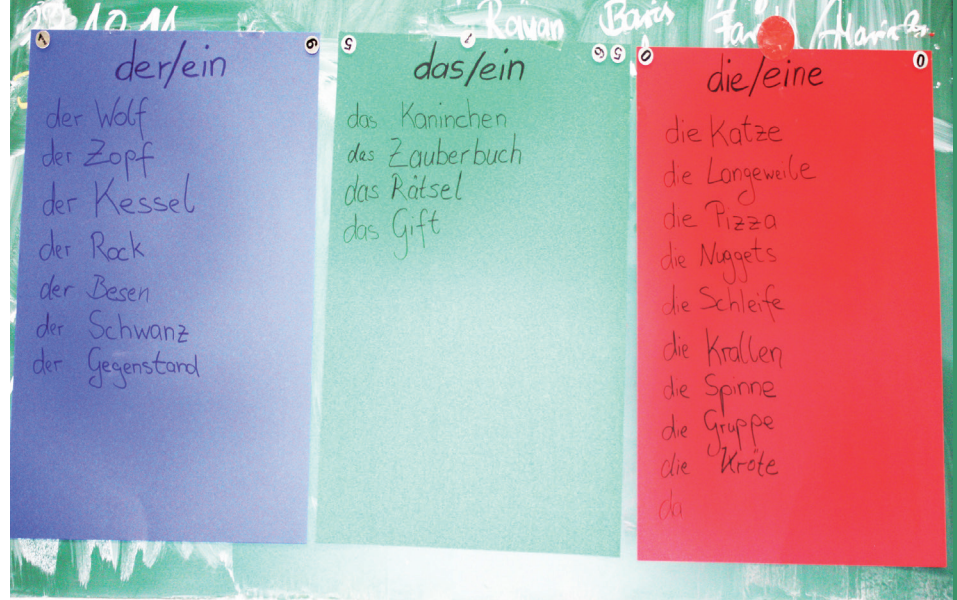 Rayan Baris
der/ein
der Wolf
der Zopf
der Kessel
der Rock
der Besen
der Schwanz
der Gegenstand
das/ein
das Kaninchen
das Zauberbuch
das Rätsel
das Gift
die/eine
die Katze
die Langeweile
die Pizza
die Nuggets
die Schleife
die Krallen
die Spinne
die Gruppe
die Kröte